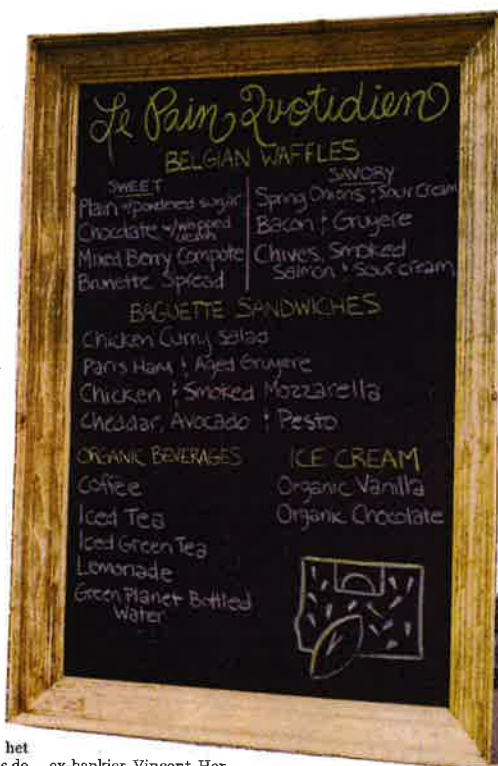 Le Pain Quotidien
BELGIAN WAFFLES
SWEET
Plain w/powdered sugar
Chocolate w/whipped cream
Mixed Berry Compote
Brunette Spread
SAVORY
Spring Onions & Sour Cream
Bacon & Gruyere
Chives, Smoked
Salmon & Sour cream
BAGUETTE SANDWICHES
Chicken Curry Salad
Paris Ham & Aged Gruyere
Chicken & Smoked Mozzarella
Cheddar, Avocado & Pesto
ORGANIC BEVERAGES
Coffee
Iced Tea
Iced Green Tea
Lemonade
Green Planet Bottled
Water
ICE CREAM
Organic Vanilla
Organic Chocolate
het
ex-bankier Vincent Her-